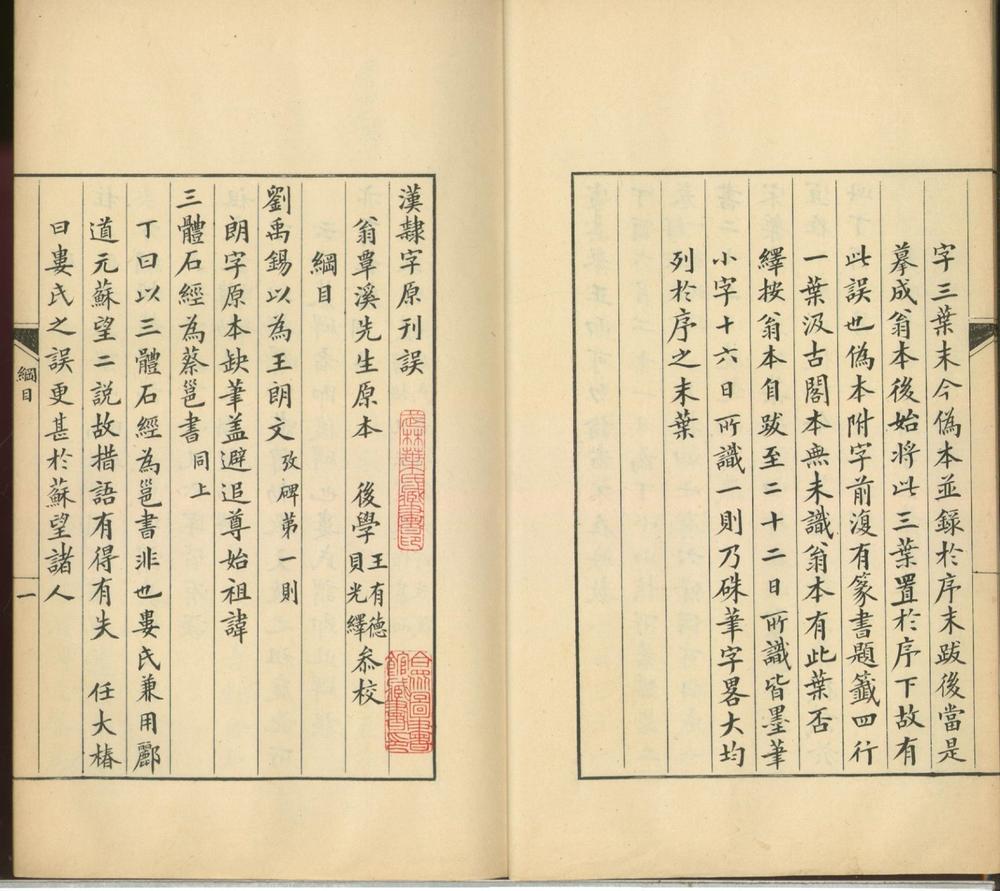 字三葉末今偽本並録於序末跋後當是
摹成翁本後始將此三葉置於序下故有
此誤也偽本附字前復有篆書題籤四行
一葉汲古閣本無未識翁本有此葉否
繹按翁本自跋至二十二日所識皆墨筆
小字十六日所識一則乃硃筆字畧大均
列於序之末葉
漢隸字原刊誤
翁覃溪先生原本 後學王有德貝光繹叅校
綱目
劉禹錫以為王朗文攷碑第一則
朗字原本缺筆盖避追尊始祖諱
三體石經為蔡邕書同上
丁曰以三體石經為邕書非也婁氏兼用酈
道元蘇望二説故措語有得有失 任大椿
曰婁氏之誤更甚於蘇望諸人
綱目
一